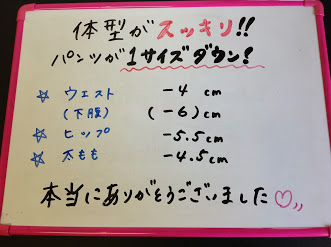 体型がスッキリ!!
パンツが1サイズダウン!
☆ ウエスト -4 cm
(下腹) (-6) cm
☆ ヒップ -5.5 cm
☆ 太もも -4.5 cm
本当にありがとうございました♡